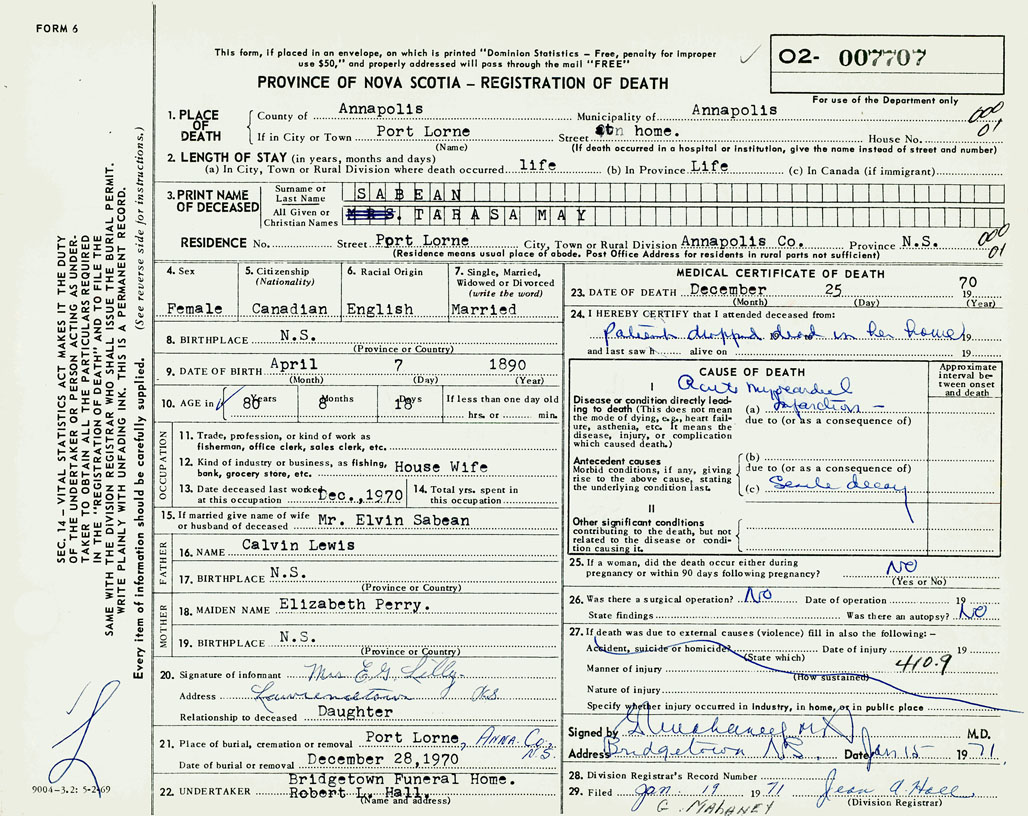 FORM 6
This form, if placed in an envelope, on which is printed "Dominion Statistics – Free, penalty for improper
use $50," and properly addressed will pass through the mail "FREE"
O2- 007707
For use of the Department only
PROVINCE OF NOVA SCOTIA – REGISTRATION OF DEATH
1. PLACE OF DEATH
County of Annapolis Municipality of Annapolis 000
If in City or Town Port Lorne Street home. House No. 01
(Name) (If death occurred in a hospital or institution, give the name instead of street and number)
2. LENGTH OF STAY (in years, months and days)
(a) In City, Town or Rural Division where death occurred life (b) In Province Life (c) In Canada (if immigrant)
3. PRINT NAME OF DECEASED
Surname or Last Name SABEAN
All Given or Christian Names MRS. TARASA MAY
RESIDENCE No. Street Port Lorne City, Town or Rural Division Annapolis Co. Province N.S. 000 01
(Residence means usual place of abode. Post Office Address for residents in rural parts not sufficient)
4. Sex
Female
5. Citizenship
(Nationality)
Canadian
6. Racial Origin
English
7. Single, Married,
Widowed or Divorced
(write the word)
Married
8. BIRTHPLACE N.S.
(Province or Country)
9. DATE OF BIRTH April 7 1890
(Month) (Day) (Year)
10. AGE in 80 Years 8 Months 18 Days If less than one day old
hrs. or min.
OCCUPATION
11. Trade, profession, or kind of work as
fisherman, office clerk, sales clerk, etc.
12. Kind of industry or business, as fishing,
bank, grocery store, etc. House Wife
13. Date deceased last worked
at this occupation Dec.,1970
14. Total yrs. spent in
this occupation
15. If married give name of wife
or husband of deceased Mr. Elvin Sabean
FATHER
16. NAME Calvin Lewis
17. BIRTHPLACE N.S.
(Province or Country)
MOTHER
18. MAIDEN NAME Elizabeth Perry.
19. BIRTHPLACE N.S.
(Province or Country)
20. Signature of informant Mrs E.G. Lilly
Address Lawrencetown NS
Relationship to deceased Daughter
21. Place of burial, cremation or removal Port Lorne, ANNA. Co., N.S.
Date of burial or removal December 28,1970
22. UNDERTAKER Bridgetown Funeral Home.
Robert L. Hall.
(Name and address)
MEDICAL CERTIFICATE OF DEATH
23. DATE OF DEATH December 25 1970
(Month) (Day) (Year)
24. I HEREBY CERTIFY that I attended deceased from:
Patient dropped dead in her home 19
and last saw h alive on 19
CAUSE OF DEATH
Approximate interval between onset and death
I
Disease or condition directly leading to death (This does not mean the mode of dying, e.g., heart failure, asthenia, etc. It means the disease, injury, or complication which caused death.)
Acute Myocardial
(a) Infarction –
due to (or as a consequence of)
Antecedent causes
Morbid conditions, if any, giving
rise to the above cause, stating
the underlying condition last.
(b)
due to (or as a consequence of)
(c) Senile decay
II
Other significant conditions
contributing to the death, but not
related to the disease or condition causing it.
25. If a woman, did the death occur either during
pregnancy or within 90 days following pregnancy? NO
(Yes or No)
26. Was there a surgical operation? NO Date of operation 19
State findings Was there an autopsy? NO
27. If death was due to external causes (violence) fill in also the following: –
Accident, suicide or homicide? Date of injury 19
(State which)
Manner of injury 410.9
(How sustained)
Nature of injury
Specify whether injury occurred in industry, in home, or in public place
Signed by G Mahaney M.D.
Address Bridgetown N.S. Date Jan 15 1971
28. Division Registrar's Record Number
29. Filed Jan. 19 1971 Jean A. Hall
(Division Registrar)
G. MAHANEY
SEC. 14 – VITAL STATISTICS ACT MAKES IT THE DUTY
OF THE UNDERTAKER OR PERSON ACTING AS UNDERTAKER
TO OBTAIN ALL THE PARTICULARS REQUIRED
IN THE "REGISTRATION OF DEATH" AND TO FILE THE
SAME WITH THE DIVISION REGISTRAR WHO SHALL ISSUE THE BURIAL PERMIT.
WRITE PLAINLY WITH UNFADING INK. THIS IS A PERMANENT RECORD.
Every item of information should be carefully supplied. (See reverse side for instructions.)
9004-3.2: 5-2-69